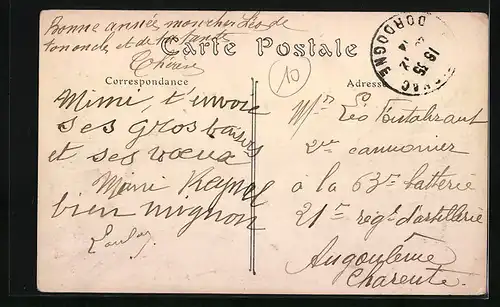 Bonne année, mon cher Léo de
ton oncle et de ta tante
Carte Postale
Correspondance
Adresse
10
DORDOGNE
Mimi, t'envoie
ses gros baisers
et ses vœux
Mimi Reynal
bien mignon
Mr Léo Fontabrant
2me cannonier
à la 63me batterie
21me régt d'artillerie
Angoulême
Charente.